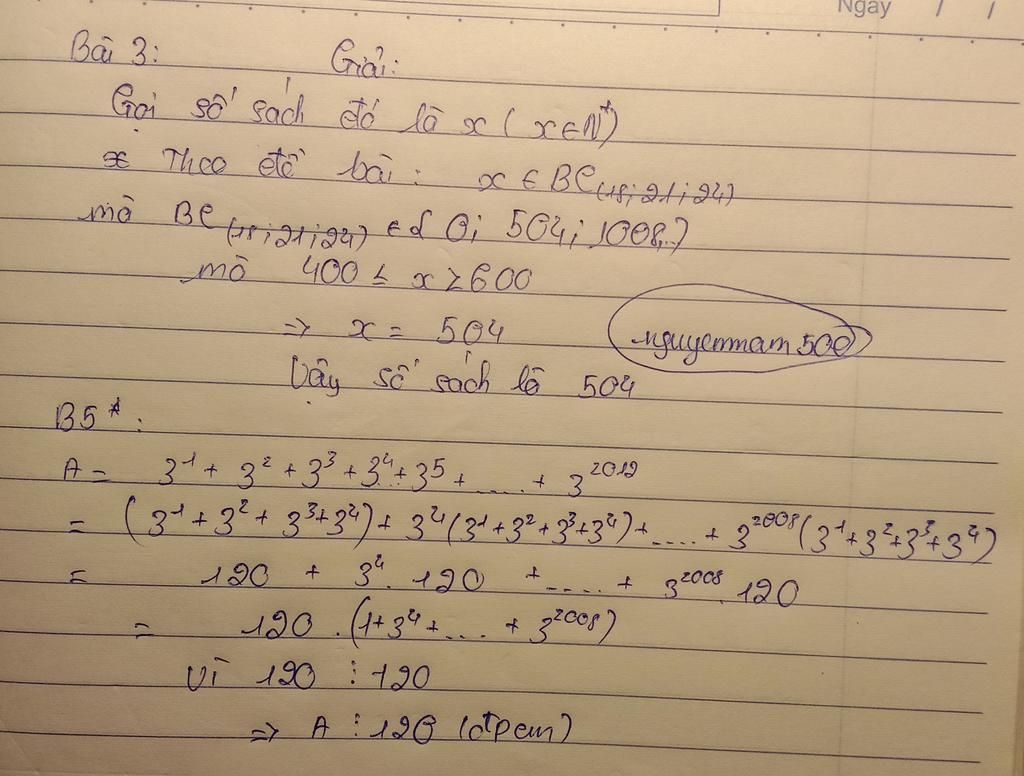 Ngày / /
Bài 3: Giải:
Gọi số sách đó là x ( x ∈ N*)
Theo đề bài: x ∈ BC(18; 21; 24)
mà BC(18; 21; 24) ∈ { 0; 504; 1008;.}
mà 400 ≤ x ≥ 600
=> x = 504
nguyennam500
Vậy số sách là 504
B5*:
A = 3^1 + 3^2 + 3^3 + 3^4 + 3^5 + ..... + 3^2012
= (3^1 + 3^2 + 3^3 + 3^4) + 3^4 (3^1 + 3^2 + 3^3 + 3^4) + ..... + 3^2008 (3^1 + 3^2 + 3^3 + 3^4)
= 120 + 3^4 . 120 + ..... + 3^2008 . 120
= 120 . (1 + 3^4 + .... + 3^2008)
Vì 120 ⋮ 120
=> A ⋮ 120 (đpcm)